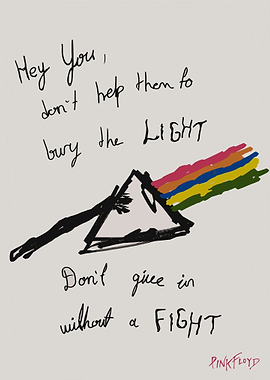 Hey You,
don't help them to
bury the LIGHT
Don't give in
without a FIGHT
PINK FLOYD